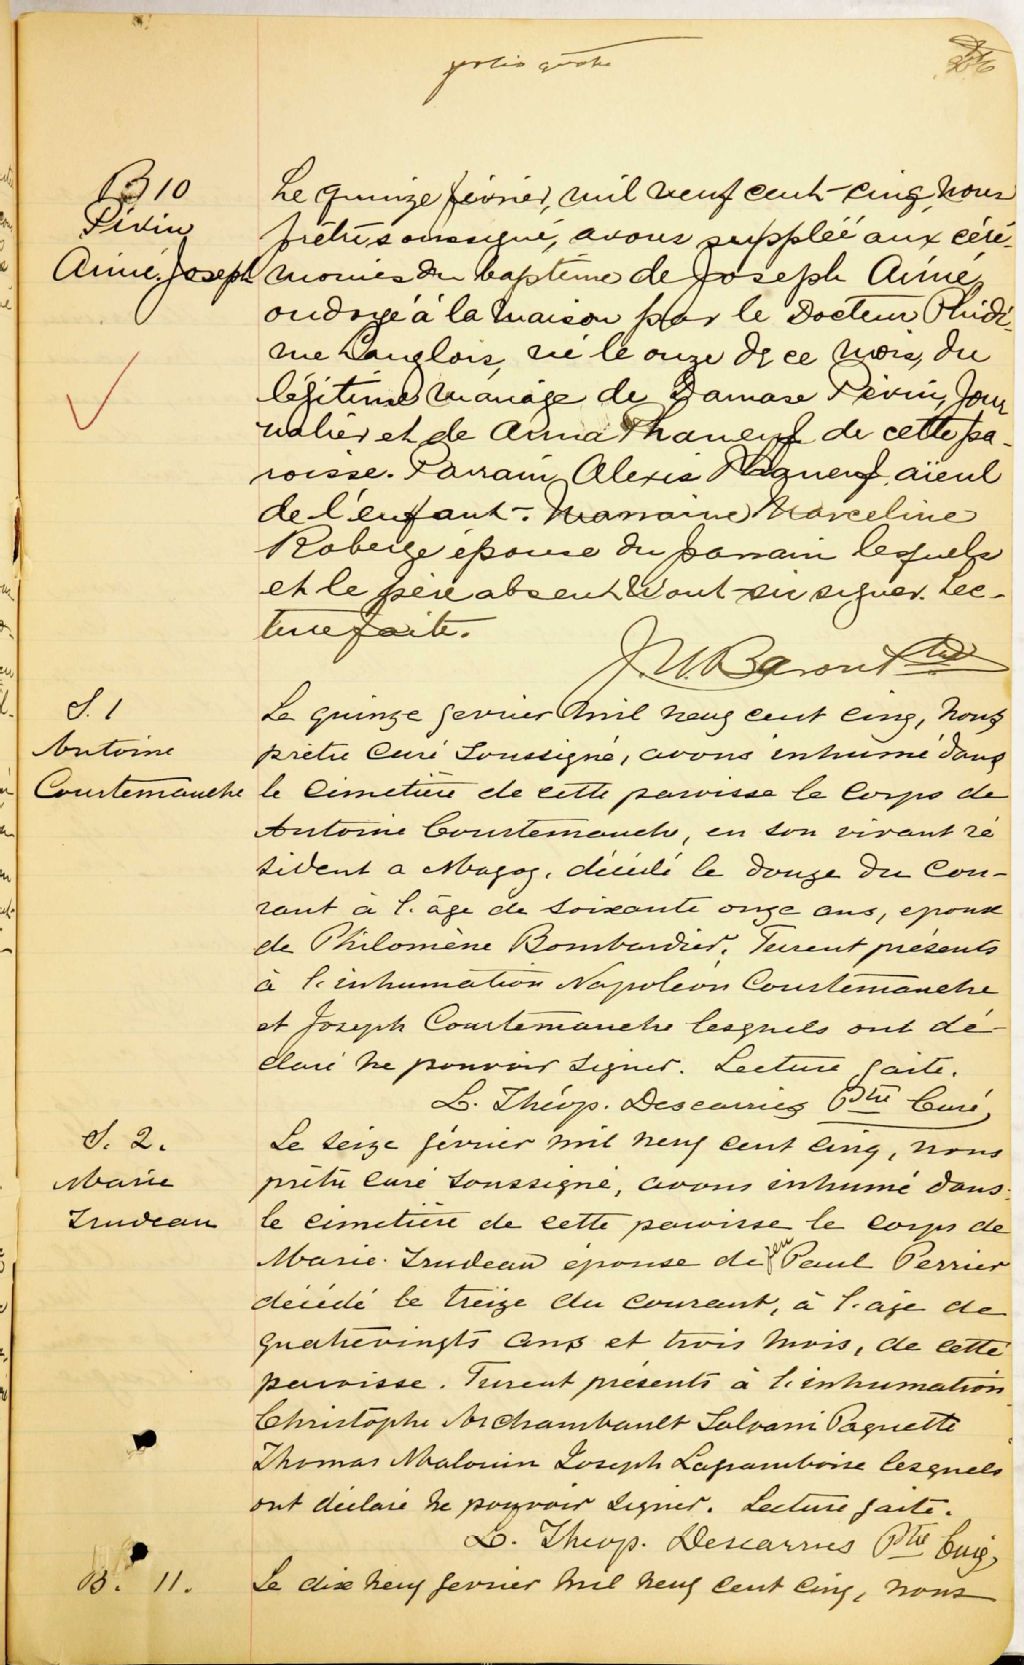 folio quatre
B 10
Pivin
Aimé. Joseph
Le quinze février, mil neuf cent-cinq, Nous
prêtre, soussigné, avons suppléé aux céré-
monies du baptême de Joseph Aimé,
ondoyé à la maison par le Docteur Phidi-
me Langlois, né le onze de ce mois, du
légitime mariage de Damase Pivin, Jour
nalier et de Anna Phaneuf de cette pa-
roisse. Parrain Alexis Phaneuf, aïeul
de l'enfant-. Marraine Marceline
Roberge épouse du parrain lesquels
et le père absent n'ont su signer. Lec-
ture faite.
J. U. Baron Ptre
S. 1
Antoine
Courtemanche
Le quinze fevrier mil neuf cent cinq, nous
prêtre curé soussigné, avons inhumé dans
le cimetière de cette paroisse le corps de
Antoine Courtemanche, en son vivant ré
sident a Magog, décédé le douze du cou-
rant à l'âge de soixante onze ans, epoux
de Philomène Bombardier. Furent présents
à l'inhumation Napoléon Courtemanche
et Joseph Courtemanche lesquels ont dé-
claré ne pouvoir signer. Lecture faite.
L. Théop. Descarries Ptre Curé,
S. 2.
Marie
Trudeau
Le seize février mil neuf cent cinq, nous
prêtre curé soussigné, avons inhumé dans
le cimetière de cette paroisse le corps de
Marie Trudeau épouse de feu Paul Perrier
décédé le treize du courant, à l'age de
quatrevingts ans et trois mois, de cette
paroisse. Furent présents à l'inhumation
Christophe Archambault Salvani Paquette
Thomas Malouin Joseph Laframboise lesquels
ont déclaré ne pouvoir signer. Lecture faite.
L. Theop. Descarries Ptre Curé,
B. 11.
Le dix neuf fevrier mil neuf cent cinq, nous